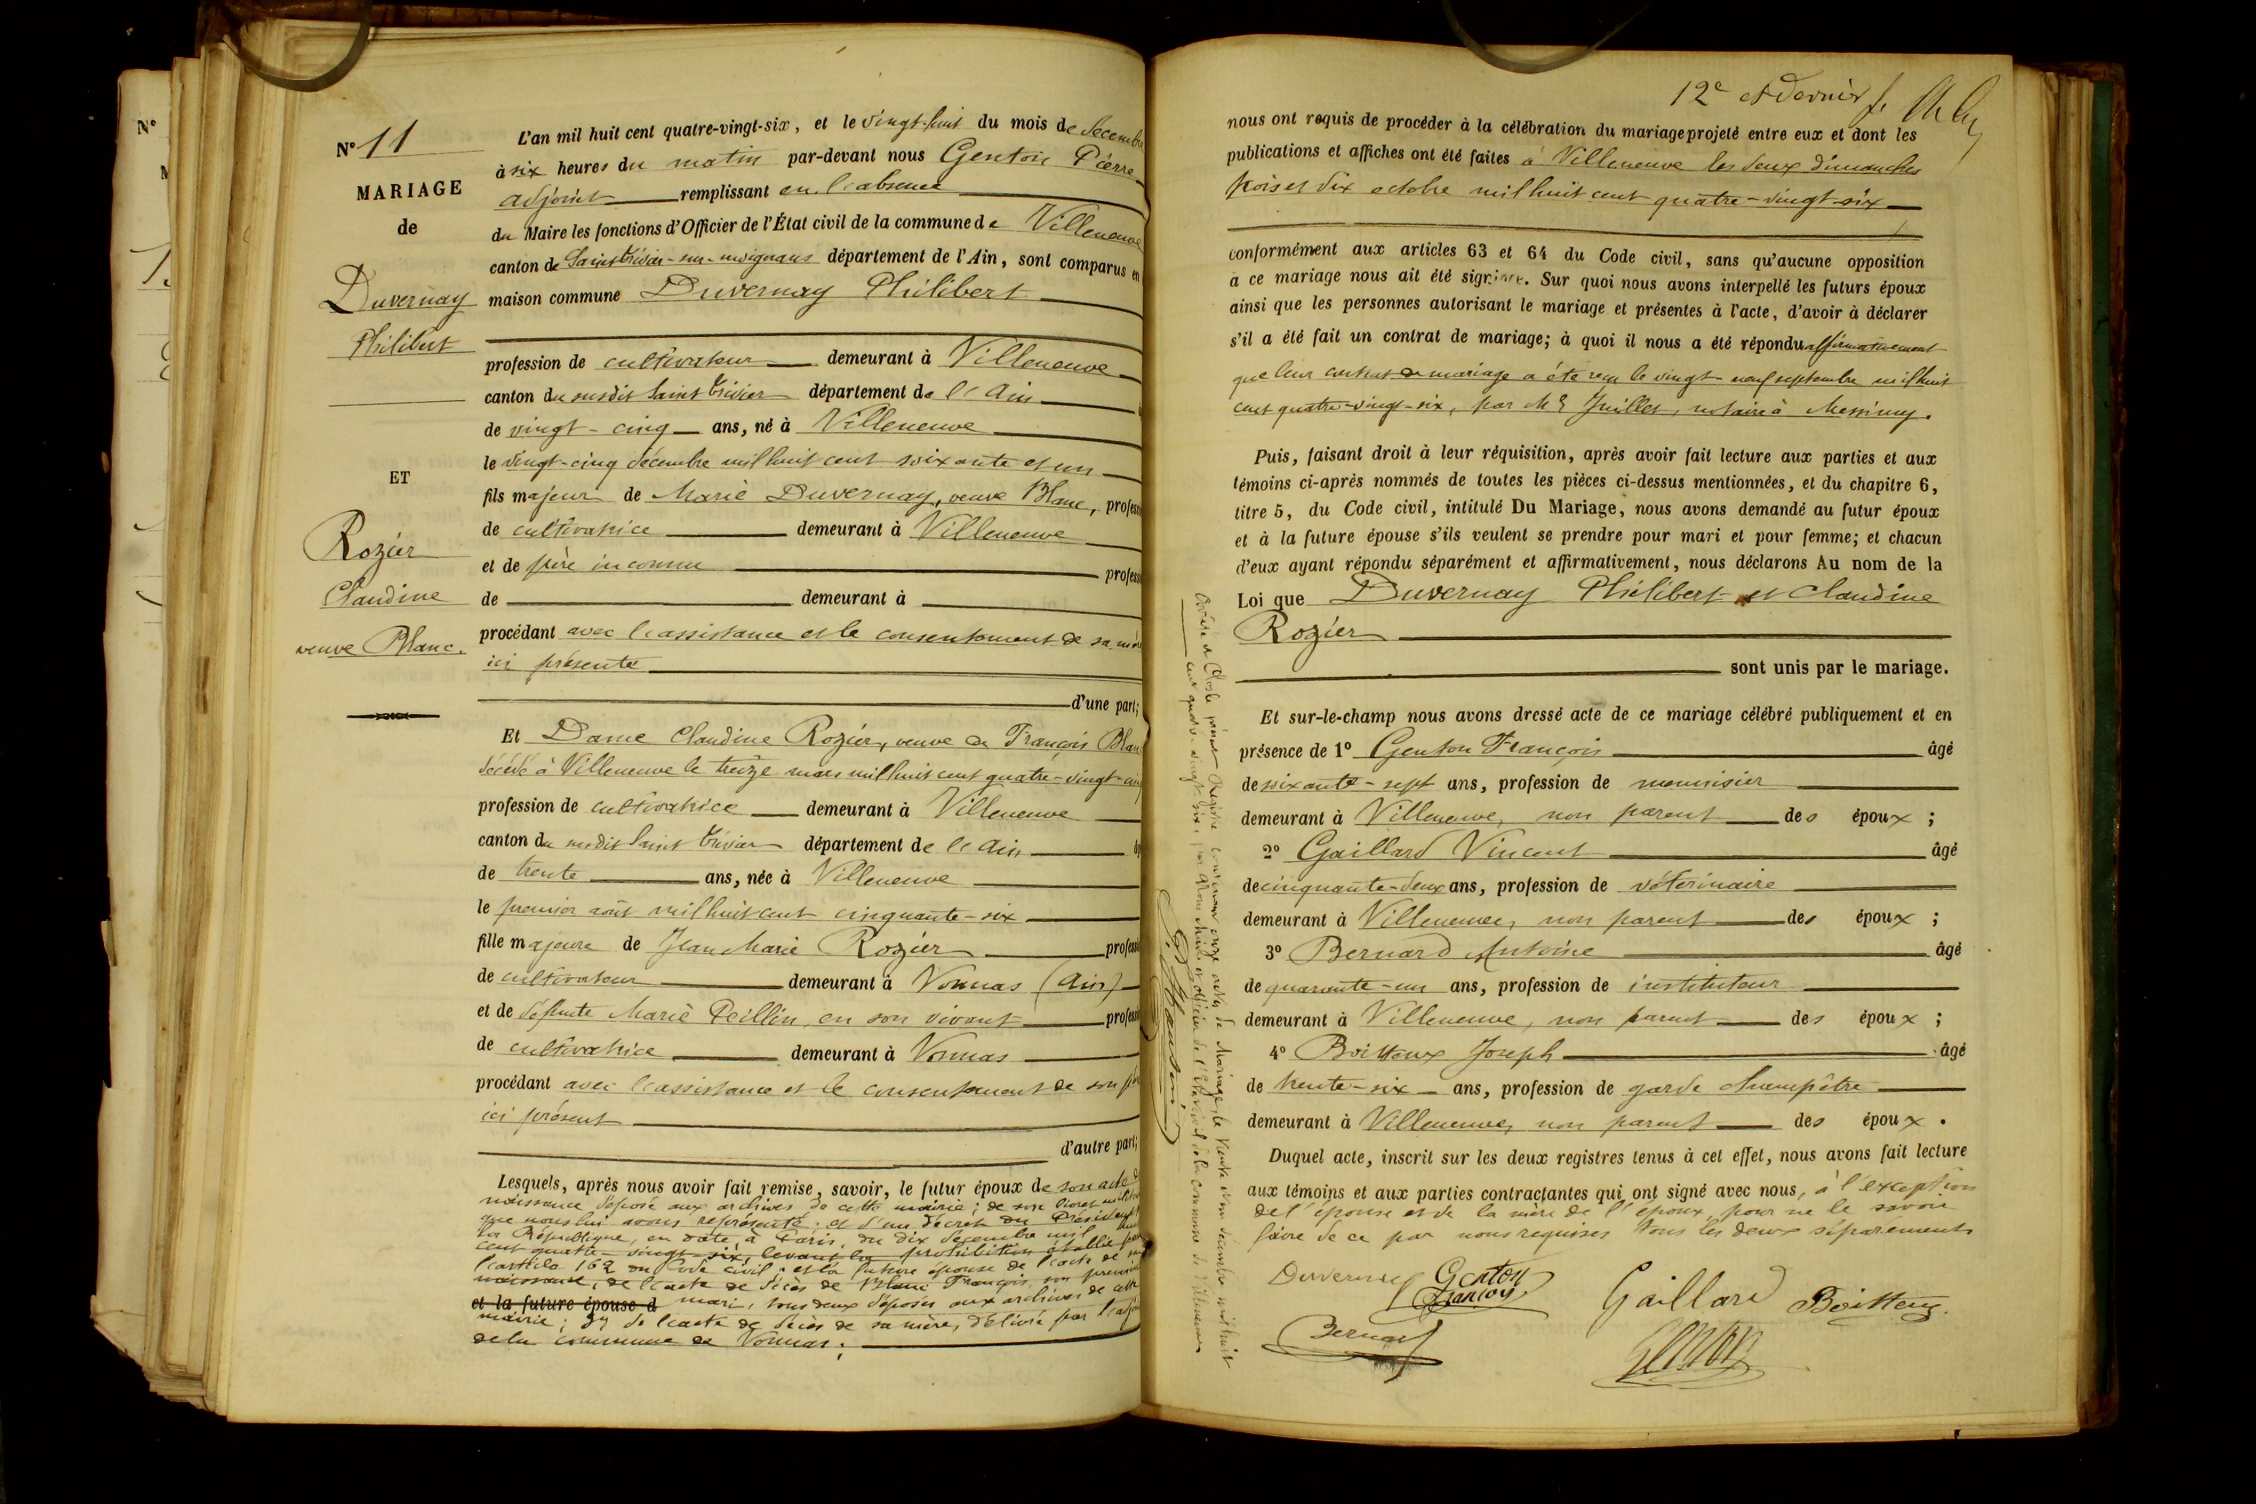 N° 11
MARIAGE
de
Duvernay
Philibert
ET
Rozier
Claudine
veuve Blanc.
L'an mil huit cent quatre-vingt-six, et le vingt-huit du mois de décembre
à six heures du matin par-devant nous Genton Pierre
adjoint remplissant en l'absence
du Maire les fonctions d'Officier de l'État civil de la commune de Villeneuve
canton de Saint Trivier-sur-moignans département de l'Ain, sont comparus en
maison commune Duvernay Philibert
profession de cultivateur demeurant à Villeneuve
canton du susdit Saint Trivier département de l'Ain
de vingt-cinq ans, né à Villeneuve
le vingt-cinq décembre mil huit cent soixante et un
fils majeur de Marie Duvernay, veuve Blanc, profess
de cultivatrice demeurant à Villeneuve
et de père inconnu profess
de demeurant à
procédant avec l'assistance et le consentement de sa mère
ici présente
d'une part;
Et Dame Claudine Rozier, veuve de François Blanc
décédé à Villeneuve le treize mars mil huit cent quatre-vingt-cinq
profession de cultivatrice demeurant à Villeneuve
canton du susdit Saint Trivier département de l'Ain
de trente ans, née à Villeneuve
le premier août mil huit cent cinquante-six
fille majeure de Jean Marie Rozier profess
de cultivateur demeurant à Vonnas (Ain)
et de défunte Marie Peillin, en son vivant profess
de cultivatrice demeurant à Vonnas
procédant avec l'assistance et le consentement de son père
ici présent
d'autre part;
Lesquels, après nous avoir fait remise, savoir, le futur époux de son acte de
naissance déposé aux archives de cette mairie; de son livret militaire
que nous lui avons représenté; et d'un décret du Président de
la République, en date, à Paris, du dix décembre mil huit
cent quatre-vingt-six, levant la prohibition établie par
l'article 162 du Code civil; et la future épouse de l'acte de sa
naissance, de l'acte de décès de Blanc François, son premier
et la future épouse d mari, tous deux déposés aux archives de cette
mairie; de l'acte de décès de sa mère, délivré par l'adjoint
de la commune de Vonnas;
12e et dernier f.
nous ont requis de procéder à la célébration du mariage projeté entre eux et dont les
publications et affiches ont été faites à Villeneuve les deux dimanches
trois et dix octobre mil huit cent quatre-vingt-six
conformément aux articles 63 et 64 du Code civil, sans qu'aucune opposition
à ce mariage nous ait été signifiée. Sur quoi nous avons interpellé les futurs époux
ainsi que les personnes autorisant le mariage et présentes à l'acte, d'avoir à déclarer
s'il a été fait un contrat de mariage; à quoi il nous a été répondu affirmativement
que leur contrat de mariage a été reçu le vingt-neuf septembre mil huit
cent quatre-vingt-six, par Me Juillet, notaire à Messimy.
Puis, faisant droit à leur réquisition, après avoir fait lecture aux parties et aux
témoins ci-après nommés de toutes les pièces ci-dessus mentionnées, et du chapitre 6,
titre 5, du Code civil, intitulé Du Mariage, nous avons demandé au futur époux
et à la future épouse s'ils veulent se prendre pour mari et pour femme; et chacun
d'eux ayant répondu séparément et affirmativement, nous déclarons Au nom de la
Loi que Duvernay Philibert et Claudine
Rozier
sont unis par le mariage.
Et sur-le-champ nous avons dressé acte de ce mariage célébré publiquement et en
présence de 1° Genton François âgé
de soixante-sept ans, profession de menuisier
demeurant à Villeneuve, non parent des époux ;
2° Gaillard Vincent âgé
de cinquante-deux ans, profession de vétérinaire
demeurant à Villeneuve, non parent des époux ;
3° Bernard Antoine âgé
de quarante-un ans, profession de instituteur
demeurant à Villeneuve, non parent des époux ;
4° Boitteux Joseph âgé
de trente-six ans, profession de garde champêtre
demeurant à Villeneuve, non parent des époux .
Duquel acte, inscrit sur les deux registres tenus à cet effet, nous avons fait lecture
aux témoins et aux parties contractantes qui ont signé avec nous, à l'exception
de l'épouse et de la mère de l'époux, pour ne le savoir
faire de ce par nous requises tous les deux séparément
Duvernay Genton
François Gaillard Boitteux
Bernard Genton
Arrêté et Clos le présent Registre contenant onze actes de Mariage, le trente un décembre mil huit
cent quatre-vingt six, par Nous Maire et officier de l'Etat civil de la Commune de Villeneuve